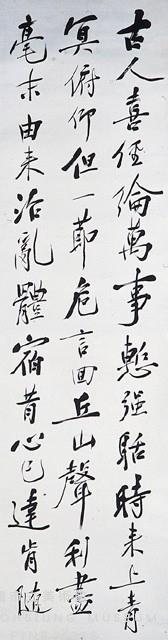 古人喜經綸萬事慙强聒時来上青
冥俯仰但一節危言回丘山聲利盡
毫末由来治亂體宿昔心已達肯随